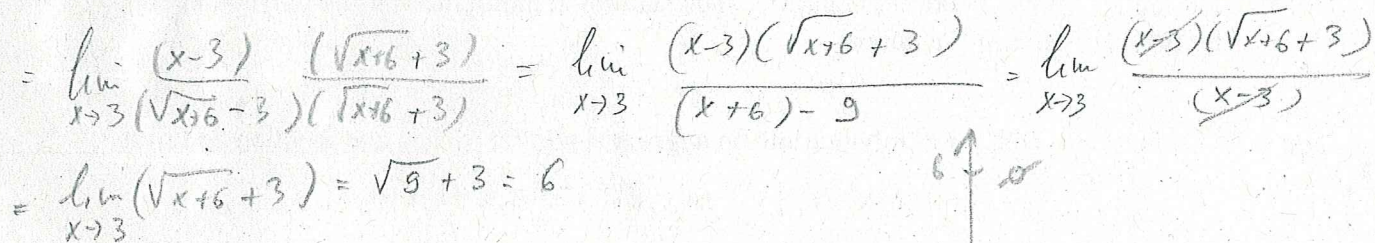 = lim x→3 (x-3)/(√x+6 - 3) (√x+6 + 3)/(√x+6 + 3) = lim x→3 (x-3)(√x+6 + 3)/((x+6) - 9) = lim x→3 (x-3)(√x+6 + 3)/(x-3)
= lim x→3 (√x+6 + 3) = √9 + 3 = 6
6